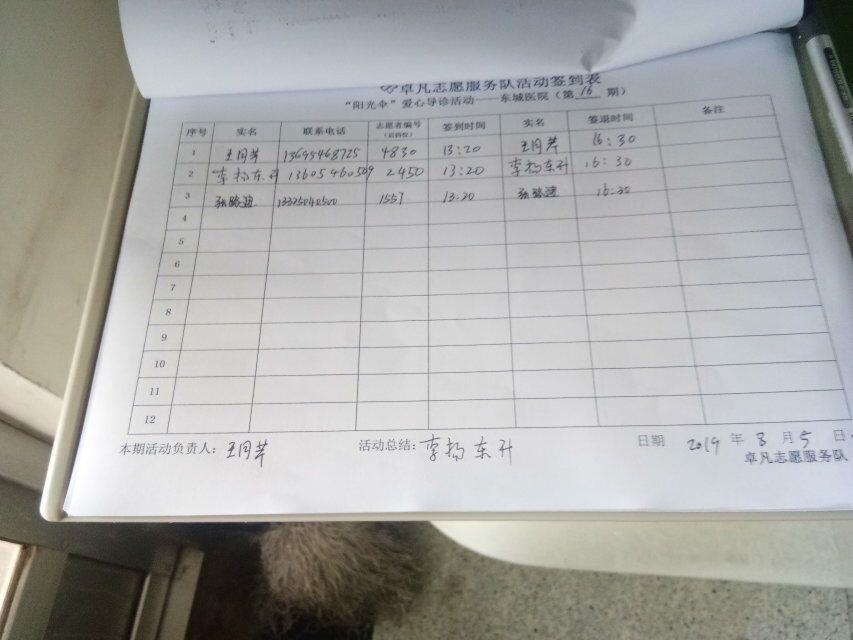 卓凡志愿服务队活动签到表
“阳光伞”爱心导诊活动——东城医院（第 16 期）
序号 实名 联系电话 志愿者编号（后四位） 签到时间 实名 签退时间 备注
1 王同芹 13695468725 4830 13:20 王同芹 16:30
2 李杨东升 13605460509 2450 13:20 李杨东升 16:30
3 13325040500 1557 13:20 16:30
4
5
6
7
8
9
10
11
12
本期活动负责人：王同芹 活动总结：李杨东升 日期 2019 年 8 月 5 日
卓凡志愿服务队